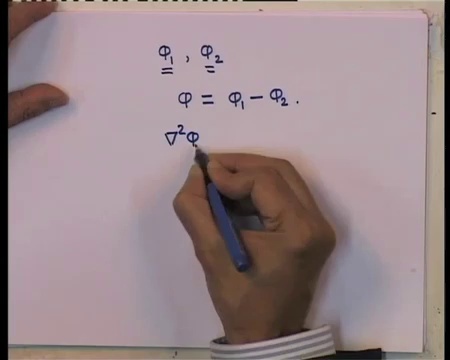 φ₁ , φ₂
φ = φ₁ − φ₂ .
∇²φ